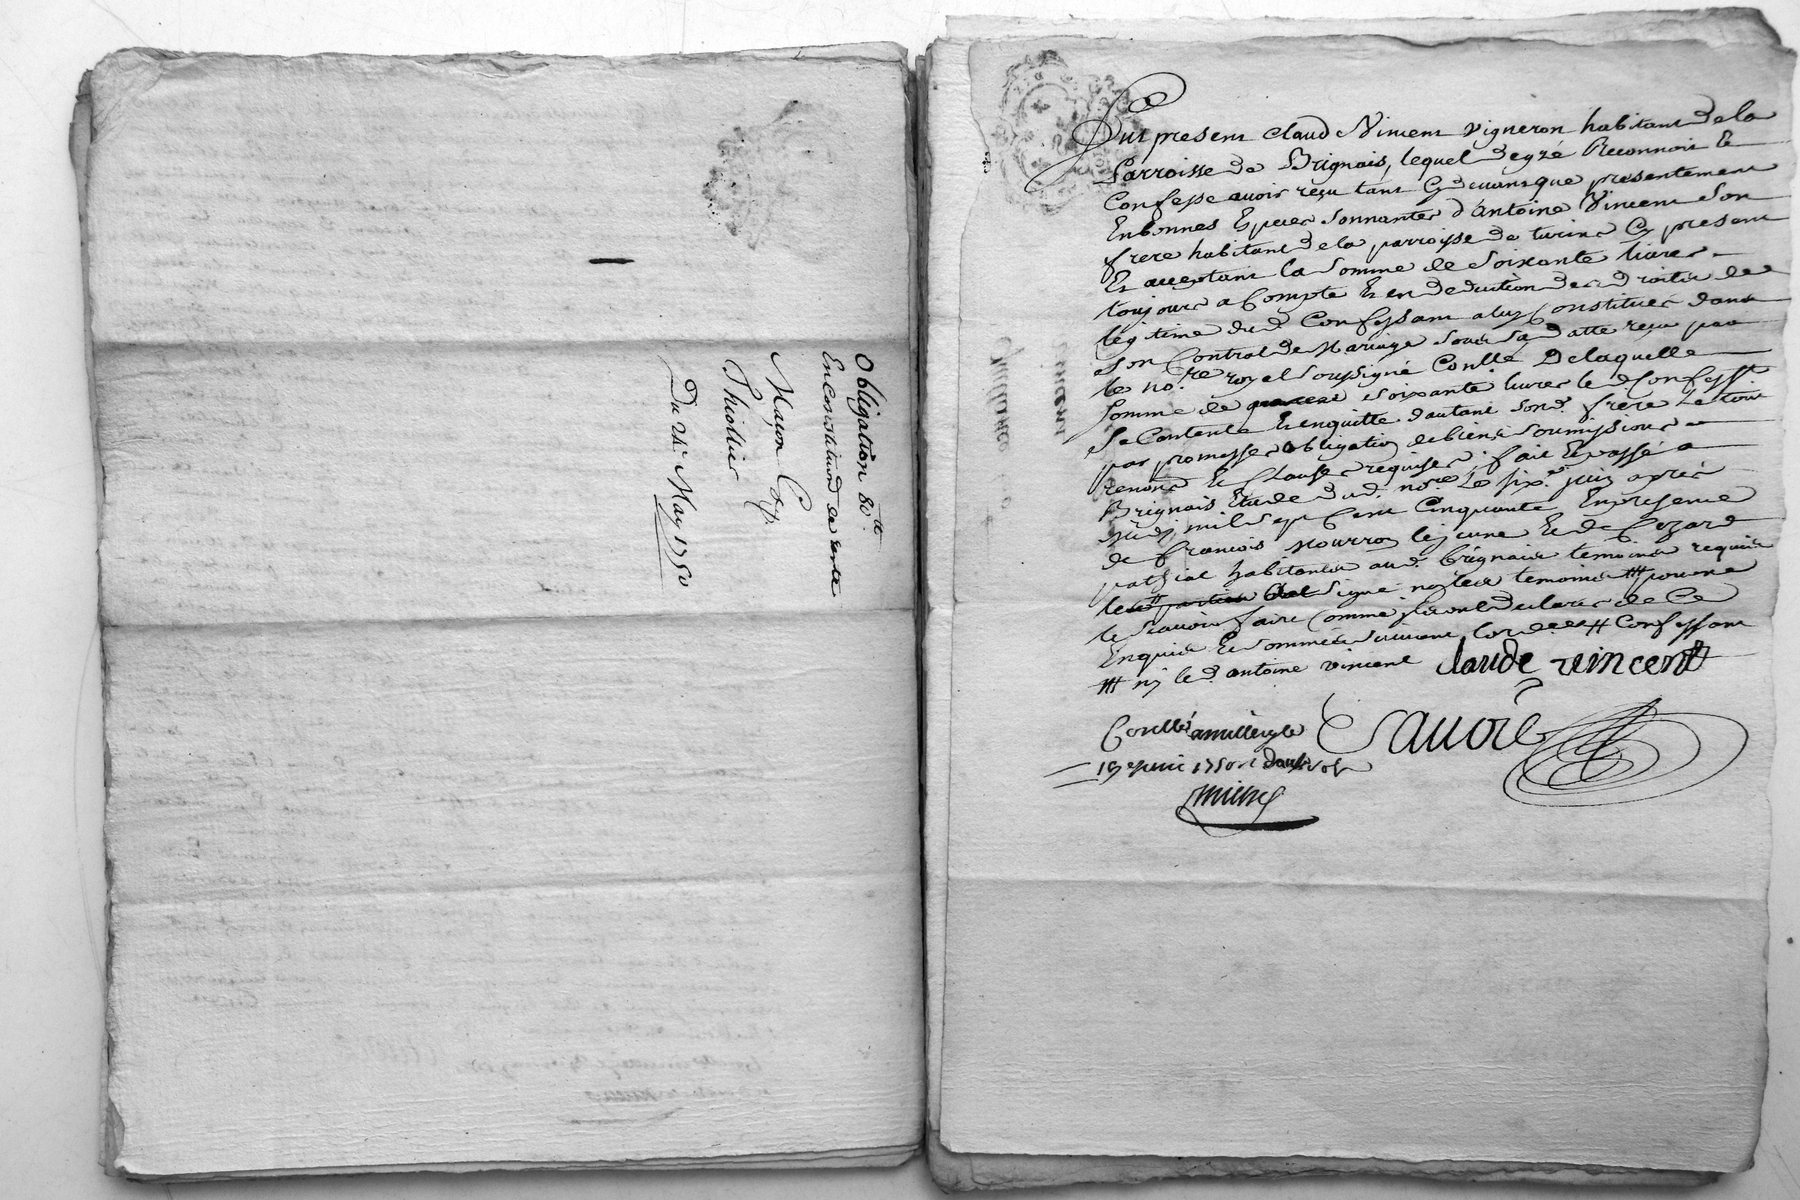 Obligation 80.tt
En Constitution de rente
Mayon
Thiollier
Du 24.e May 1750
Fut present Claud Vincent Vigneron habitant de la
Parroisse de Brignais, lequel de gré Reconnois Et
Confesse avoir reçu tant Cy devant que presentement
En bonnes Especes Sonnantes d'Antoine Vincent Son
frere habitant de la parroisse de turins Cy present
Et acceptant la Somme de Soixante livres
toujours a Compte Et en Deduction des droits de
legitime dud. Confessant a luy Constitués dans
Son Contrat de Mariage Sous Sa datte reçu par
le no.re royal Soussigné Con.llé De laquelle
Somme de Soixante livres led. Confess.t
Se Contente Et en quitte d'autant Sond. frere Le tout
par promesses obligation de biens Soumissions
renon.s Et Clauses requises, fait Et passé a
Brignais Etude dud. no.re Le six.e juin après
midy mil Sept Cent Cinquante En presence
de françois Mourron le jeune Et de
habitants aud. Brignais temoins requis
le # Signé ny les temoins ## pour ne
le Scavoir faire Comme ils ont declaré de Ce
Enquis Et Sommés Suivant l'ord. # Confessant
## ny led. antoine vincent claude vincent
Con.llé a millery le Savoie
19 juin 1750 r douze sols